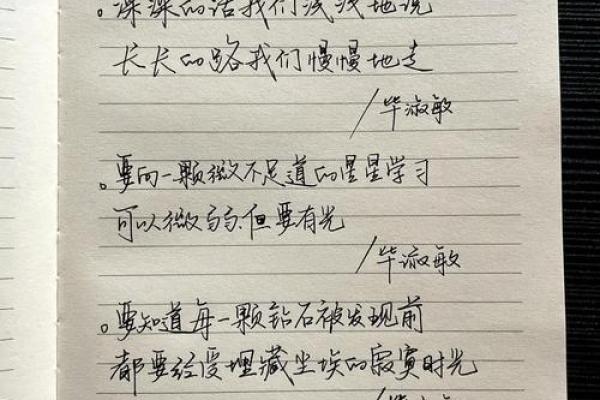 。深深的话我们浅浅地说
长长的路我们慢慢地走
/毕淑敏
。要向一颗微不足道的星星学习
可以微弱.但要有光
/毕淑敏
。要知道每一颗钻石被发现前
都要经受埋藏尘埃的寂寞时光